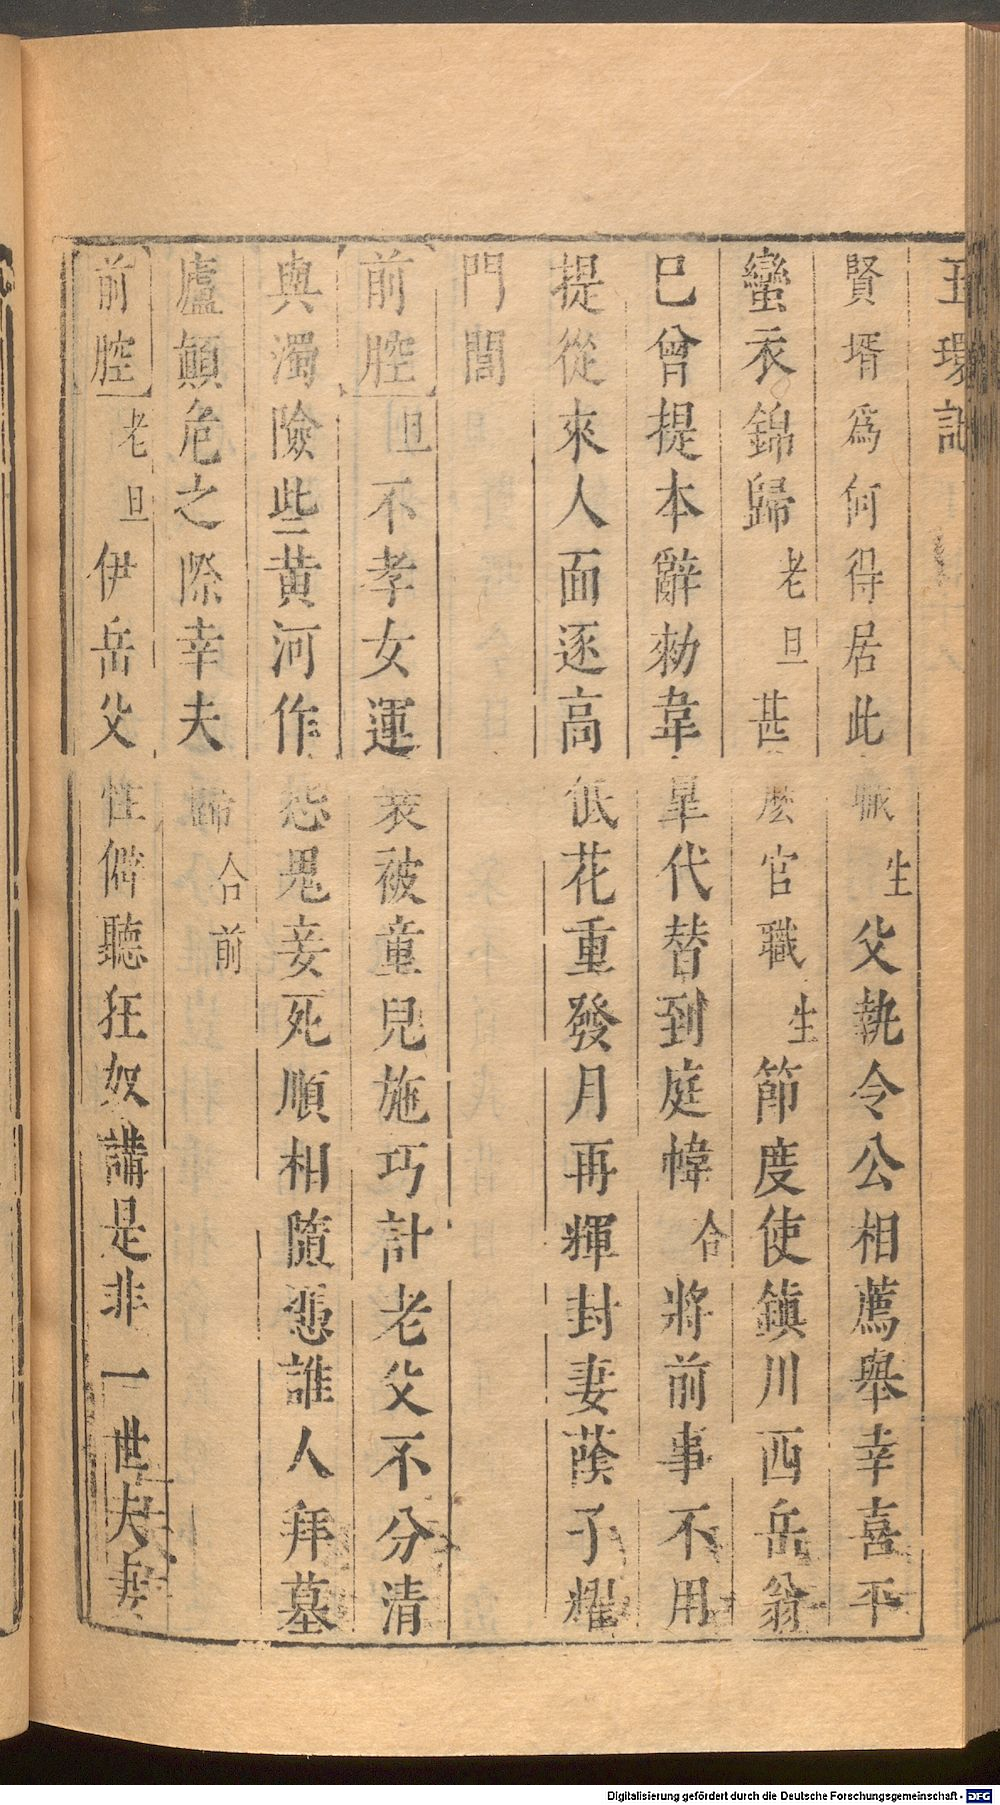 玉環記
賢壻爲何得居此職生父執令公相薦舉幸喜平
蠻衣錦歸老旦甚麽官職生節度使鎮川西岳翁
已曾提本辭勑韋臯代替到庭幃合將前事不用
提從來人面逐高低花重發月再輝封妻䕃子耀
門閭
前腔旦不孝女運衰被童兒施巧計老父不分清
與濁險些黄河作怨鬼妾死順相隨憑誰人拜墓
廬顛危之際幸夫歸合前
前腔老旦伊岳父性僻聽狂奴講是非一世夫妻
Digitalisierung gefördert durch die Deutsche Forschungsgemeinschaft - DFG